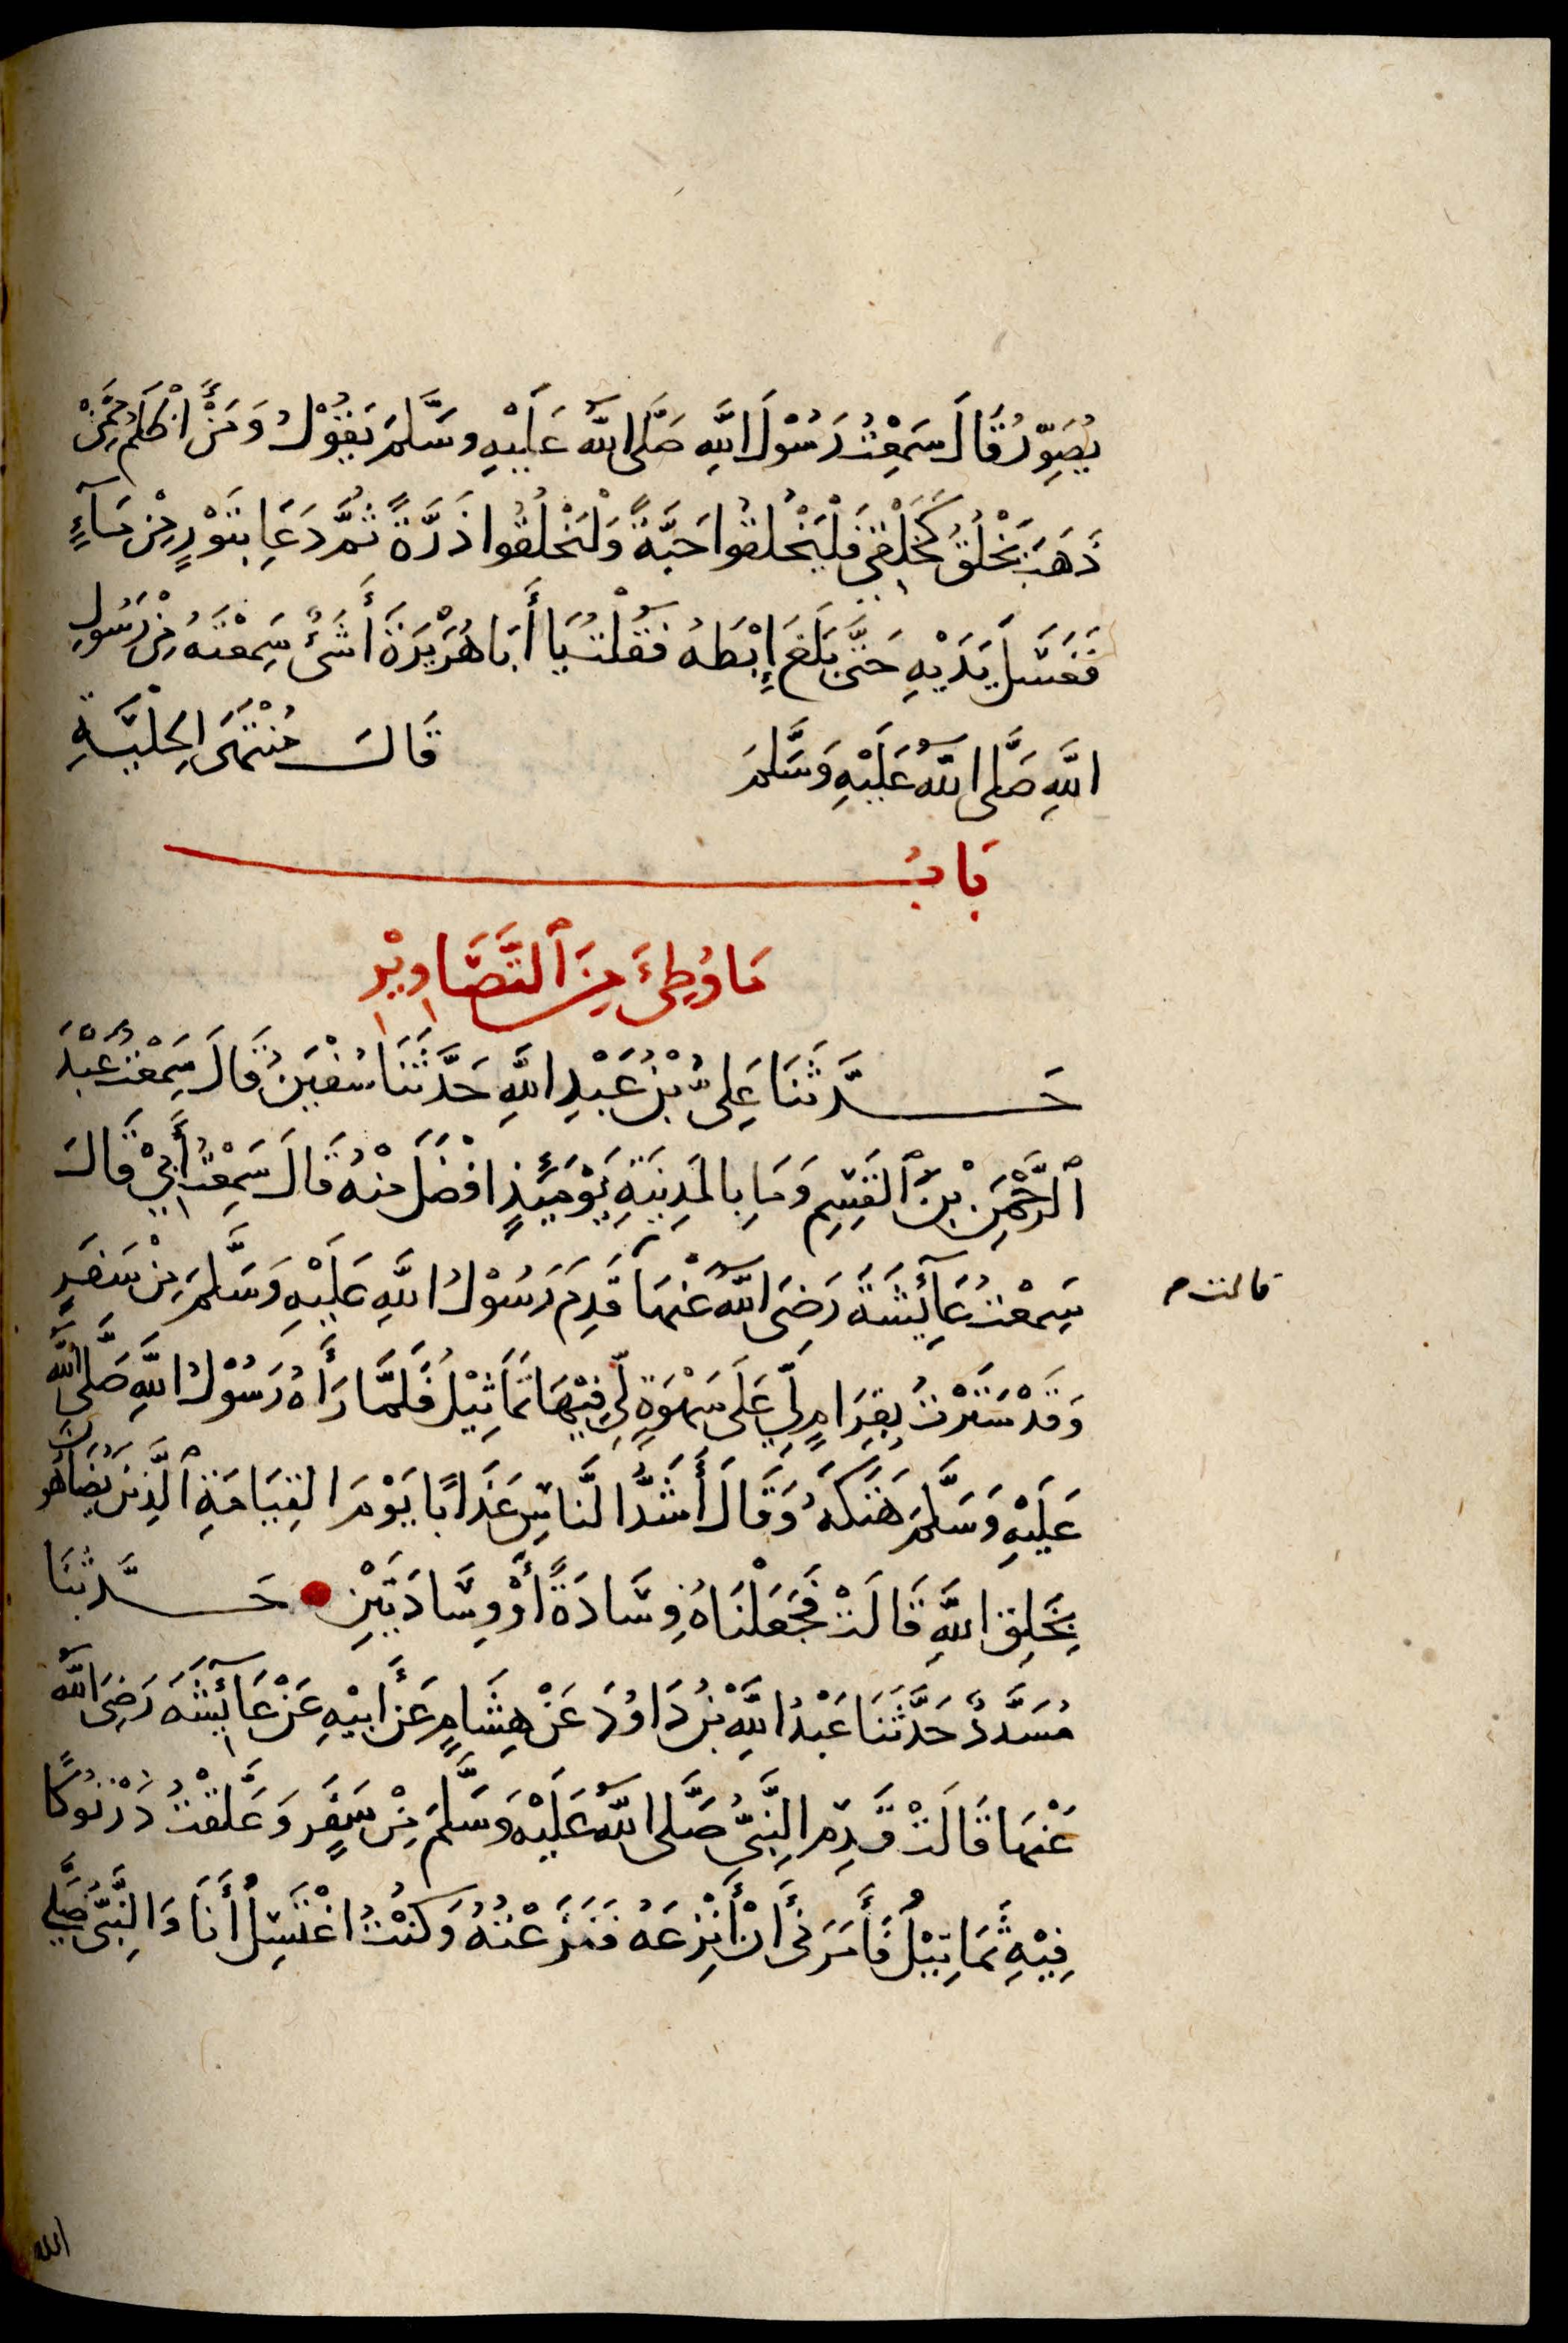 يُصَوِّرُ قَالَ سَمِعْتُ رَسُوْلَ اللَّهِ صَلَّى اللَّهُ عَلَيْهِ وسَلَّمَ يَقُوْلُ وَمَنْ أَظْلَمُ مِمَّنْ
ذَهَبَ يَخْلُقُ كَخَلْقِي فَلْيَخْلُقُوا حَبَّةً وَلْيَخْلُقُوا ذَرَّةً ثُمَّ دَعَا بِتَوْرٍ مِنْ مَآءٍ
فَغَسَلَ يَدَيْهِ حَتَّى بَلَغَ إِبْطَهُ فَقُلْتُ يَا أَبَا هُرَيْرَةَ أَشَىْءٌ سَمِعْتَهُ مِنْ رَسُولِ
اللَّهِ صَلَّى اللَّهُ عَلَيْهِ وَسَلَّمَ قَالَ مُنْتَهَى الحِلْيَةِ
بَابُ
مَا وُطِئَ مِنَ ٱلتَّصَاوِيْرِ
حَدَّثَنَا عَلِىُّ بْنُ عَبْدِ اللَّهِ حَدَّثَنَا سُفْيَنُ قَالَ سَمِعْتُ عَبْدَ
ٱلرَّحْمَنِ بْنَ ٱلقَسِمِ وَمَا بِالمَدِيْنَةِ يَوْمَئِذٍ افْضَلَ مِنْهُ قَالَ سَمِعْتُ أَبِيْ قَالَ
سَمِعْتُ عَآئِشَةَ رَضِىَ اللَّهُ عَنْهَا قَدِمَ رَسُوْلُ اللَّهِ عَلَيْهِ وَسَلَّمَ مِنْ سَفَرٍ
قالت م
وَقَدْ سَتَرْتُ بِقِرَامٍ لِّي عَلَى سَهْوَةٍ لِّي فِيْهَا تَمَاثِيْلُ فَلَمَّا رَأَهُ رَسُوْلُ اللَّهِ صَلَّى اللَّهُ
عَلَيْهِ وَسَلَّمَ هَتَكَهُ وَقَالَ أَشَدُّ النَّاسِ عَذَابًا يَوْمَ القِيَامَةِ ٱلَّذِيْنَ يُضَاهُونَ
بِخَلِقِ اللَّهِ قَالَتْ فَجَعَلْنَاهُ وِسَادَةً أَوْ وِسَادَتَيْنِ حَدَّثَنَا
مُسَدَّدٌ حَدَّثَنَا عَبْدُ اللَّهِ بْنُ دَاوُدَ عَنْ هِشَامٍ عَنْ أَبِيْهِ عَنْ عَآئِشَهَ رَضِىَ اللَّهُ
عَنْهَا قَالَتْ قَدِمَ النَّبِىُّ صَلَّى اللَّهُ عَلَيْهِ وَسَلَّمَ مِنْ سَفَرٍ وَعَلَّقْتُ دُرْنُوكًا
فِيْهِ تَمَاثِيْلُ فَأَمَرَنِى أَنْ أَنْزِعَهُ فَنَزَعْتُهُ وَكُنْتُ اغْتَسِلُ أَنَا وَالنَّبِىُّ صَلَّى
الله